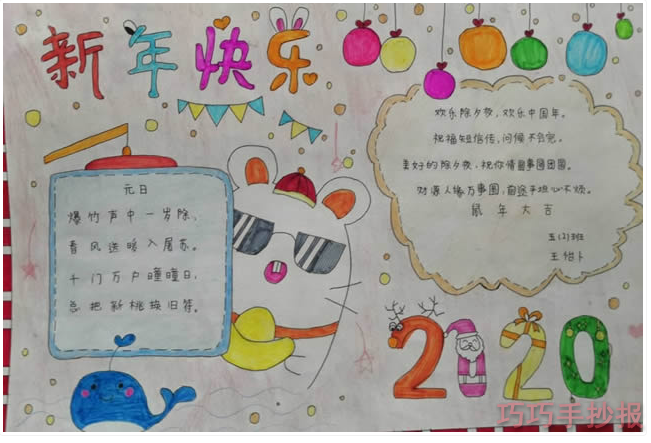 新年快乐
元日
爆竹声中一岁除、
春风送暖入屠苏。
千门万户曈曈日、
总把新桃换旧符。
欢乐除夕夜，欢乐中国年。
祝福短信传，问候不能完。
美好的除夕夜，祝你情圆事圆团圆。
财源人缘万事圆，前途平坦心不烦。
鼠年大吉
五(2)班
王怡卜
2120
巧巧手抄报